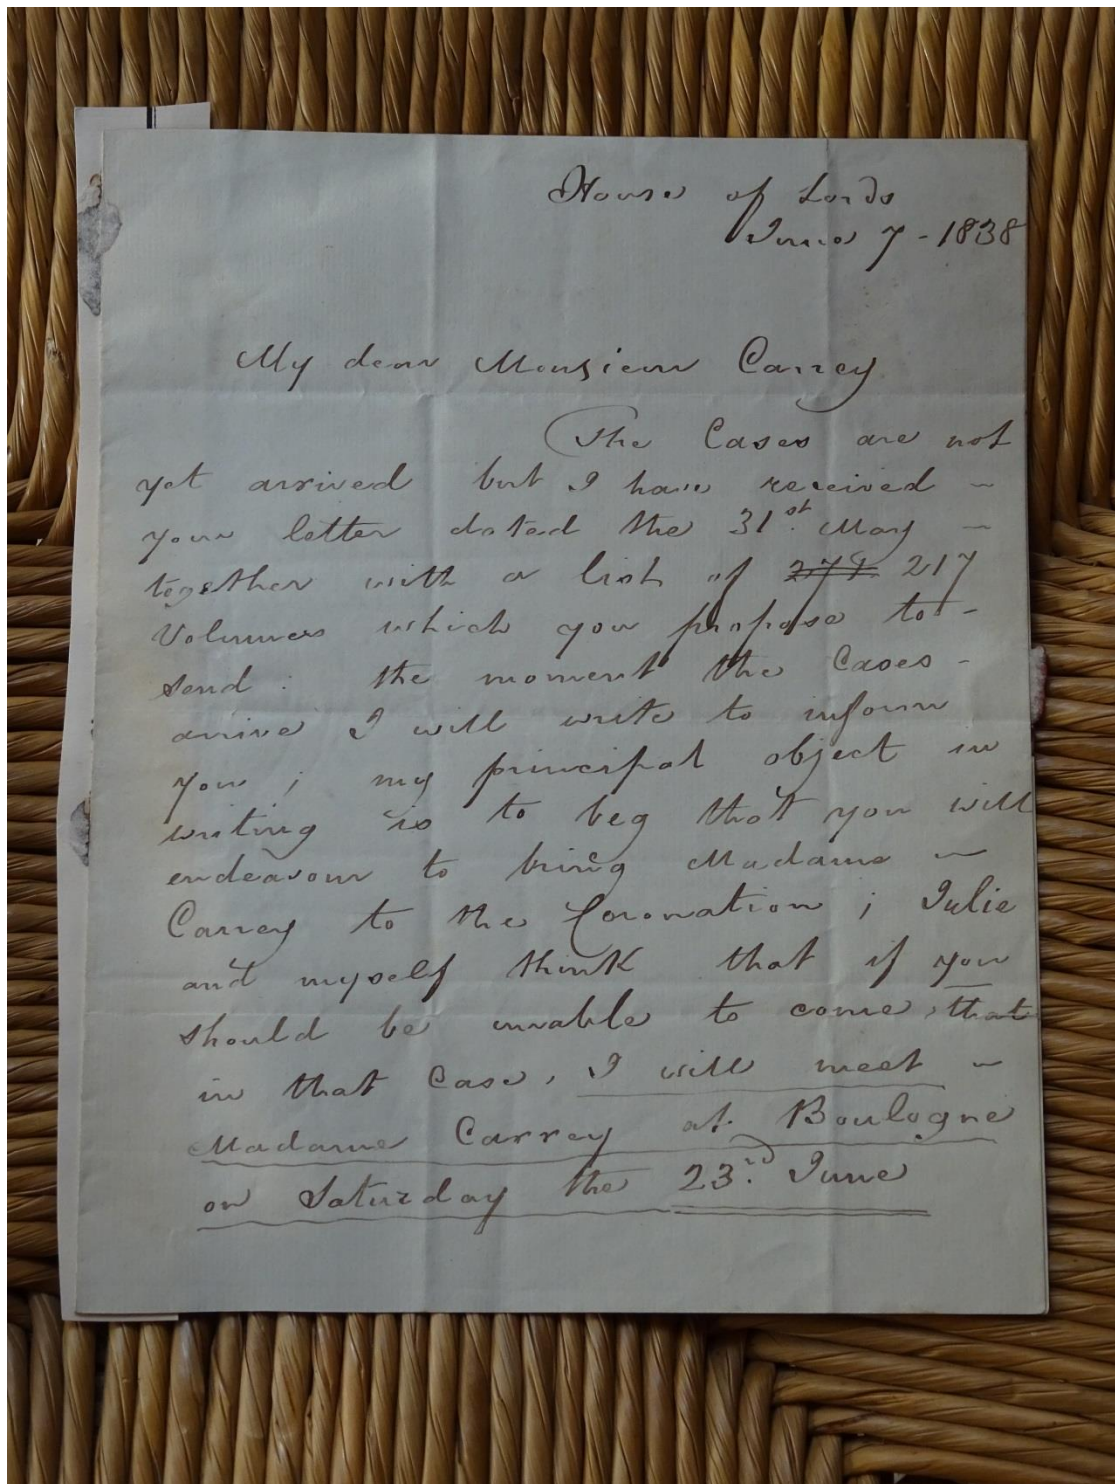 House of Lords
June 7 - 1838
My dear Monsieur Carrey
The Cases are not
yet arrived but I have received -
your letter dated the 31st. May -
together with a list of 217
Volumes which you propose to -
send : the moment the Cases -
arrive I will write to inform
you ; my principal object in
writing is to beg that you will
endeavour to bring Madame -
Carrey to the Coronation ; Julie
and myself think that if you
should be unable to come, that
in that Case, I will meet -
Madame Carrey at Boulogne
on Saturday the 23rd. June